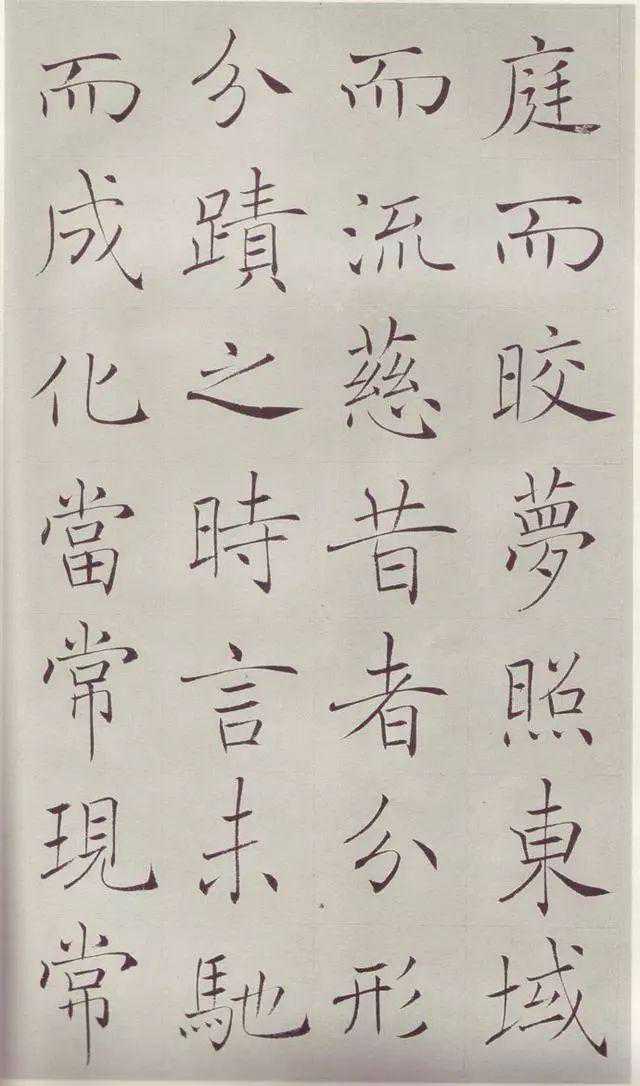 庭而晈夢照東域
而流慈昔者分形
分蹟之時言未馳
而成化當常現常